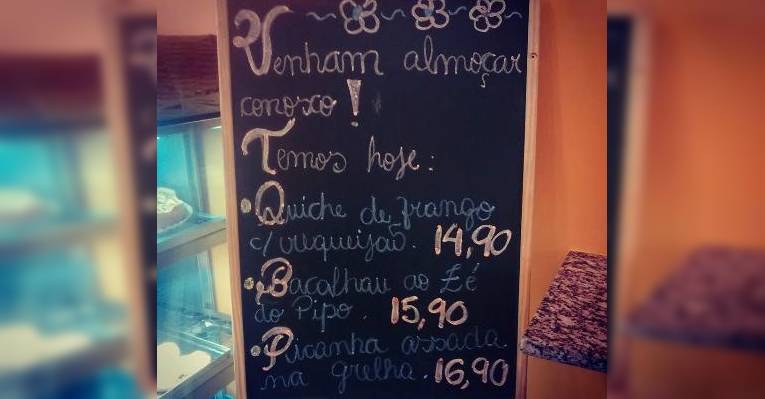 Venham almoçar
conosco!
Temos hoje:
• Quiche de frango
c/ requeijão. 14,90
• Bacalhau ao Zé
do Pipo. 15,90
• Picanha assada
na grelha. 16,90